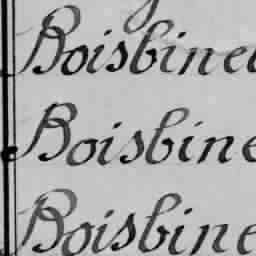 Boisbine
Boisbine
Boisbine